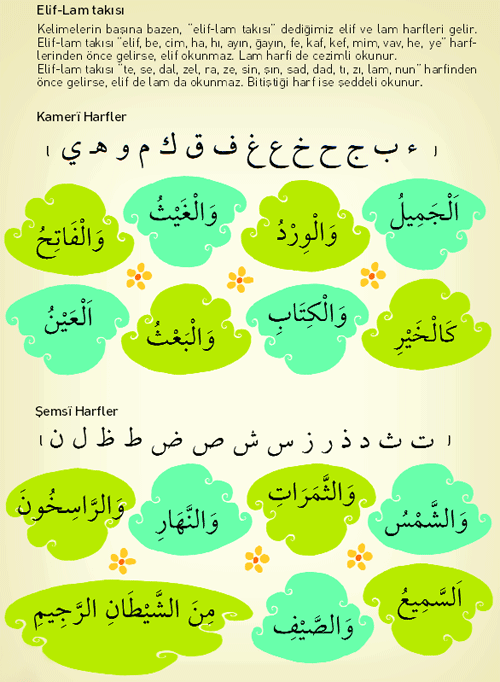 Elif-Lam takısı
Kelimelerin başına bazen, "elif-lam takısı" dediğimiz elif ve lam harfleri gelir.
Elif-lam takısı "elif, be, cim, ha, hı, ayın, ğayın, fe, kaf, kef, mim, vav, he, ye" harf-
lerinden önce gelirse, elif okunmaz. Lam harfi de cezimli okunur.
Elif-lam takısı "te, se, dal, zel, ra, ze, sin, şın, sad, dad, tı, zı, lam, nun" harfinden
önce gelirse, elif de lam da okunmaz. Bitiştiği harf ise şeddeli okunur.
Kamerî Harfler
( ء ب ج ح خ ع غ ف ق ك م و هـ ي )
اَلْجَمِيلُ وَالْوِرْدُ وَالْغَيْثُ وَالْفَاتِحُ
كَالْخَيْرِ وَالْكِتَابِ وَالْبَعْثُ اَلْعَيْنُ
Şemsî Harfler
( ت ث د ذ ر ز س ش ص ض ط ظ ل ن )
وَالشَّمْسُ وَالثَّمَرَاتِ وَالنَّهَارِ وَالرَّاسِخُونَ
اَلسَّمِيعُ وَالصَّيْفِ مِنَ الشَّيْطَانِ الرَّجِيمِ